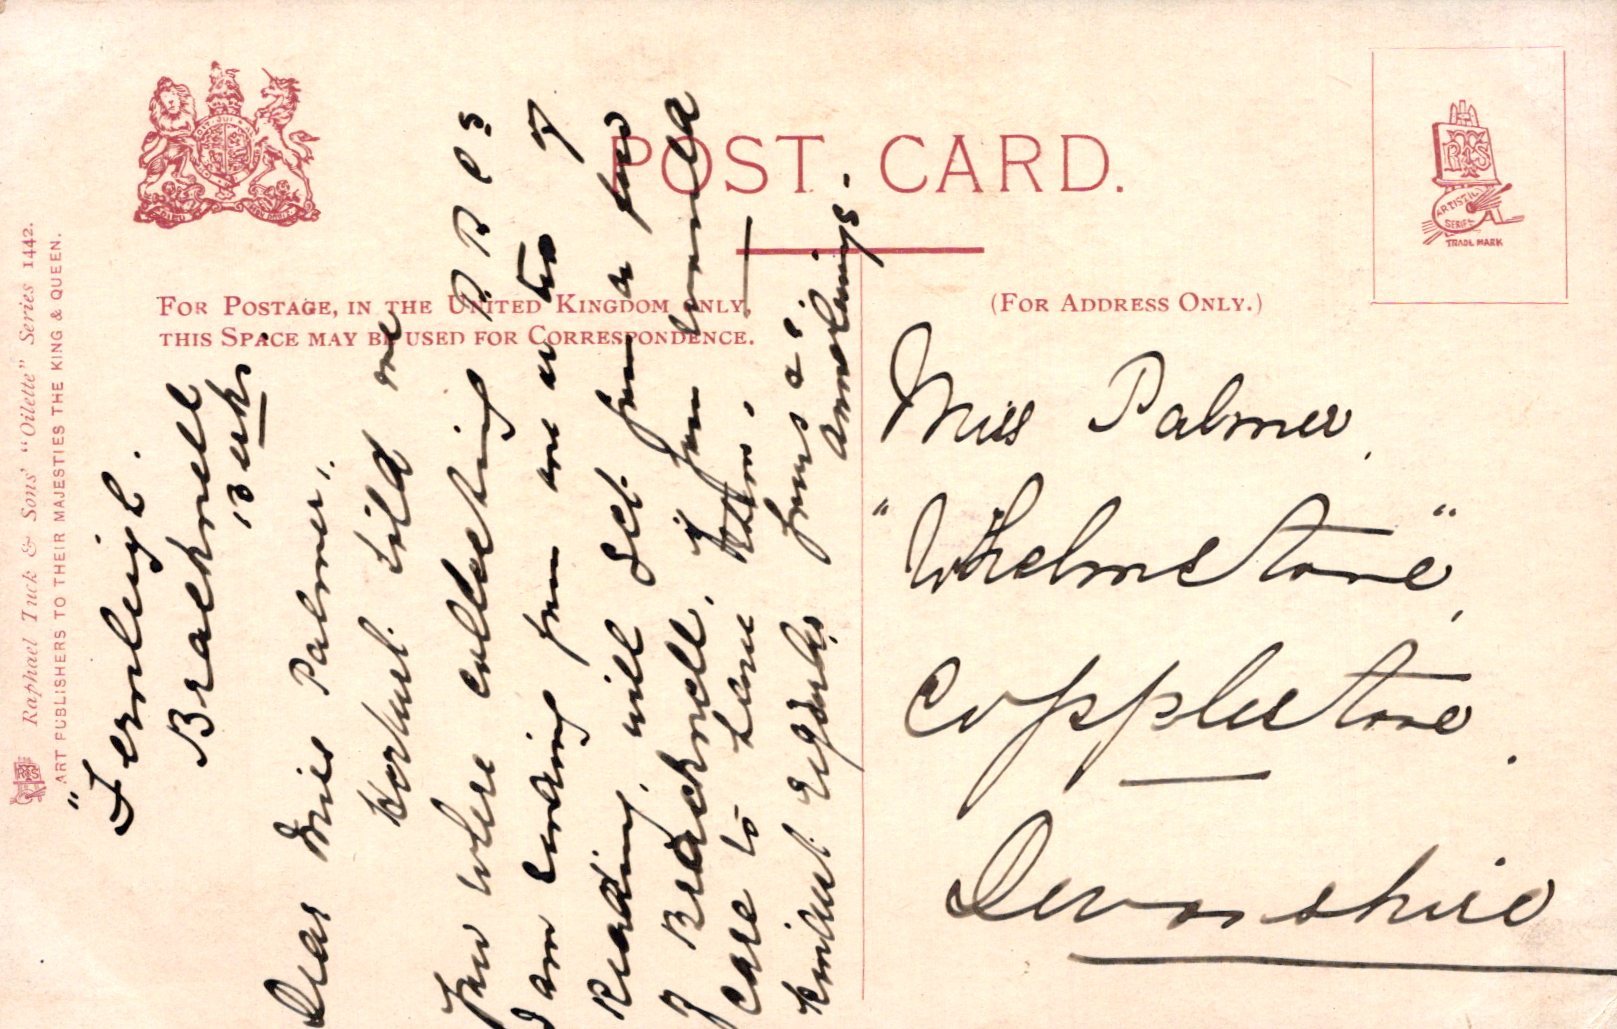 POST CARD.
FOR POSTAGE, IN THE UNITED KINGDOM ONLY
THIS SPACE MAY BE USED FOR CORRESPONDENCE.
(FOR ADDRESS ONLY.)
ARTISTIC
SERIES
TRADE MARK
Raphael Tuck & Sons' "Oilette" Series 1442.
ART PUBLISHERS TO THEIR MAJESTIES THE KING & QUEEN.
"Fernleigh.
Bracknell
Berks.
Dear Miss Palmer,
Herbert told me
you were collecting P. P. Cs
I am sending you one or two of
Reading, will get you a few
of Bracknell, if you would
care to have them.
Kindest regards
yours a
Miss Palmer,
"Whelmstone",
Copplestone.
Devonshire